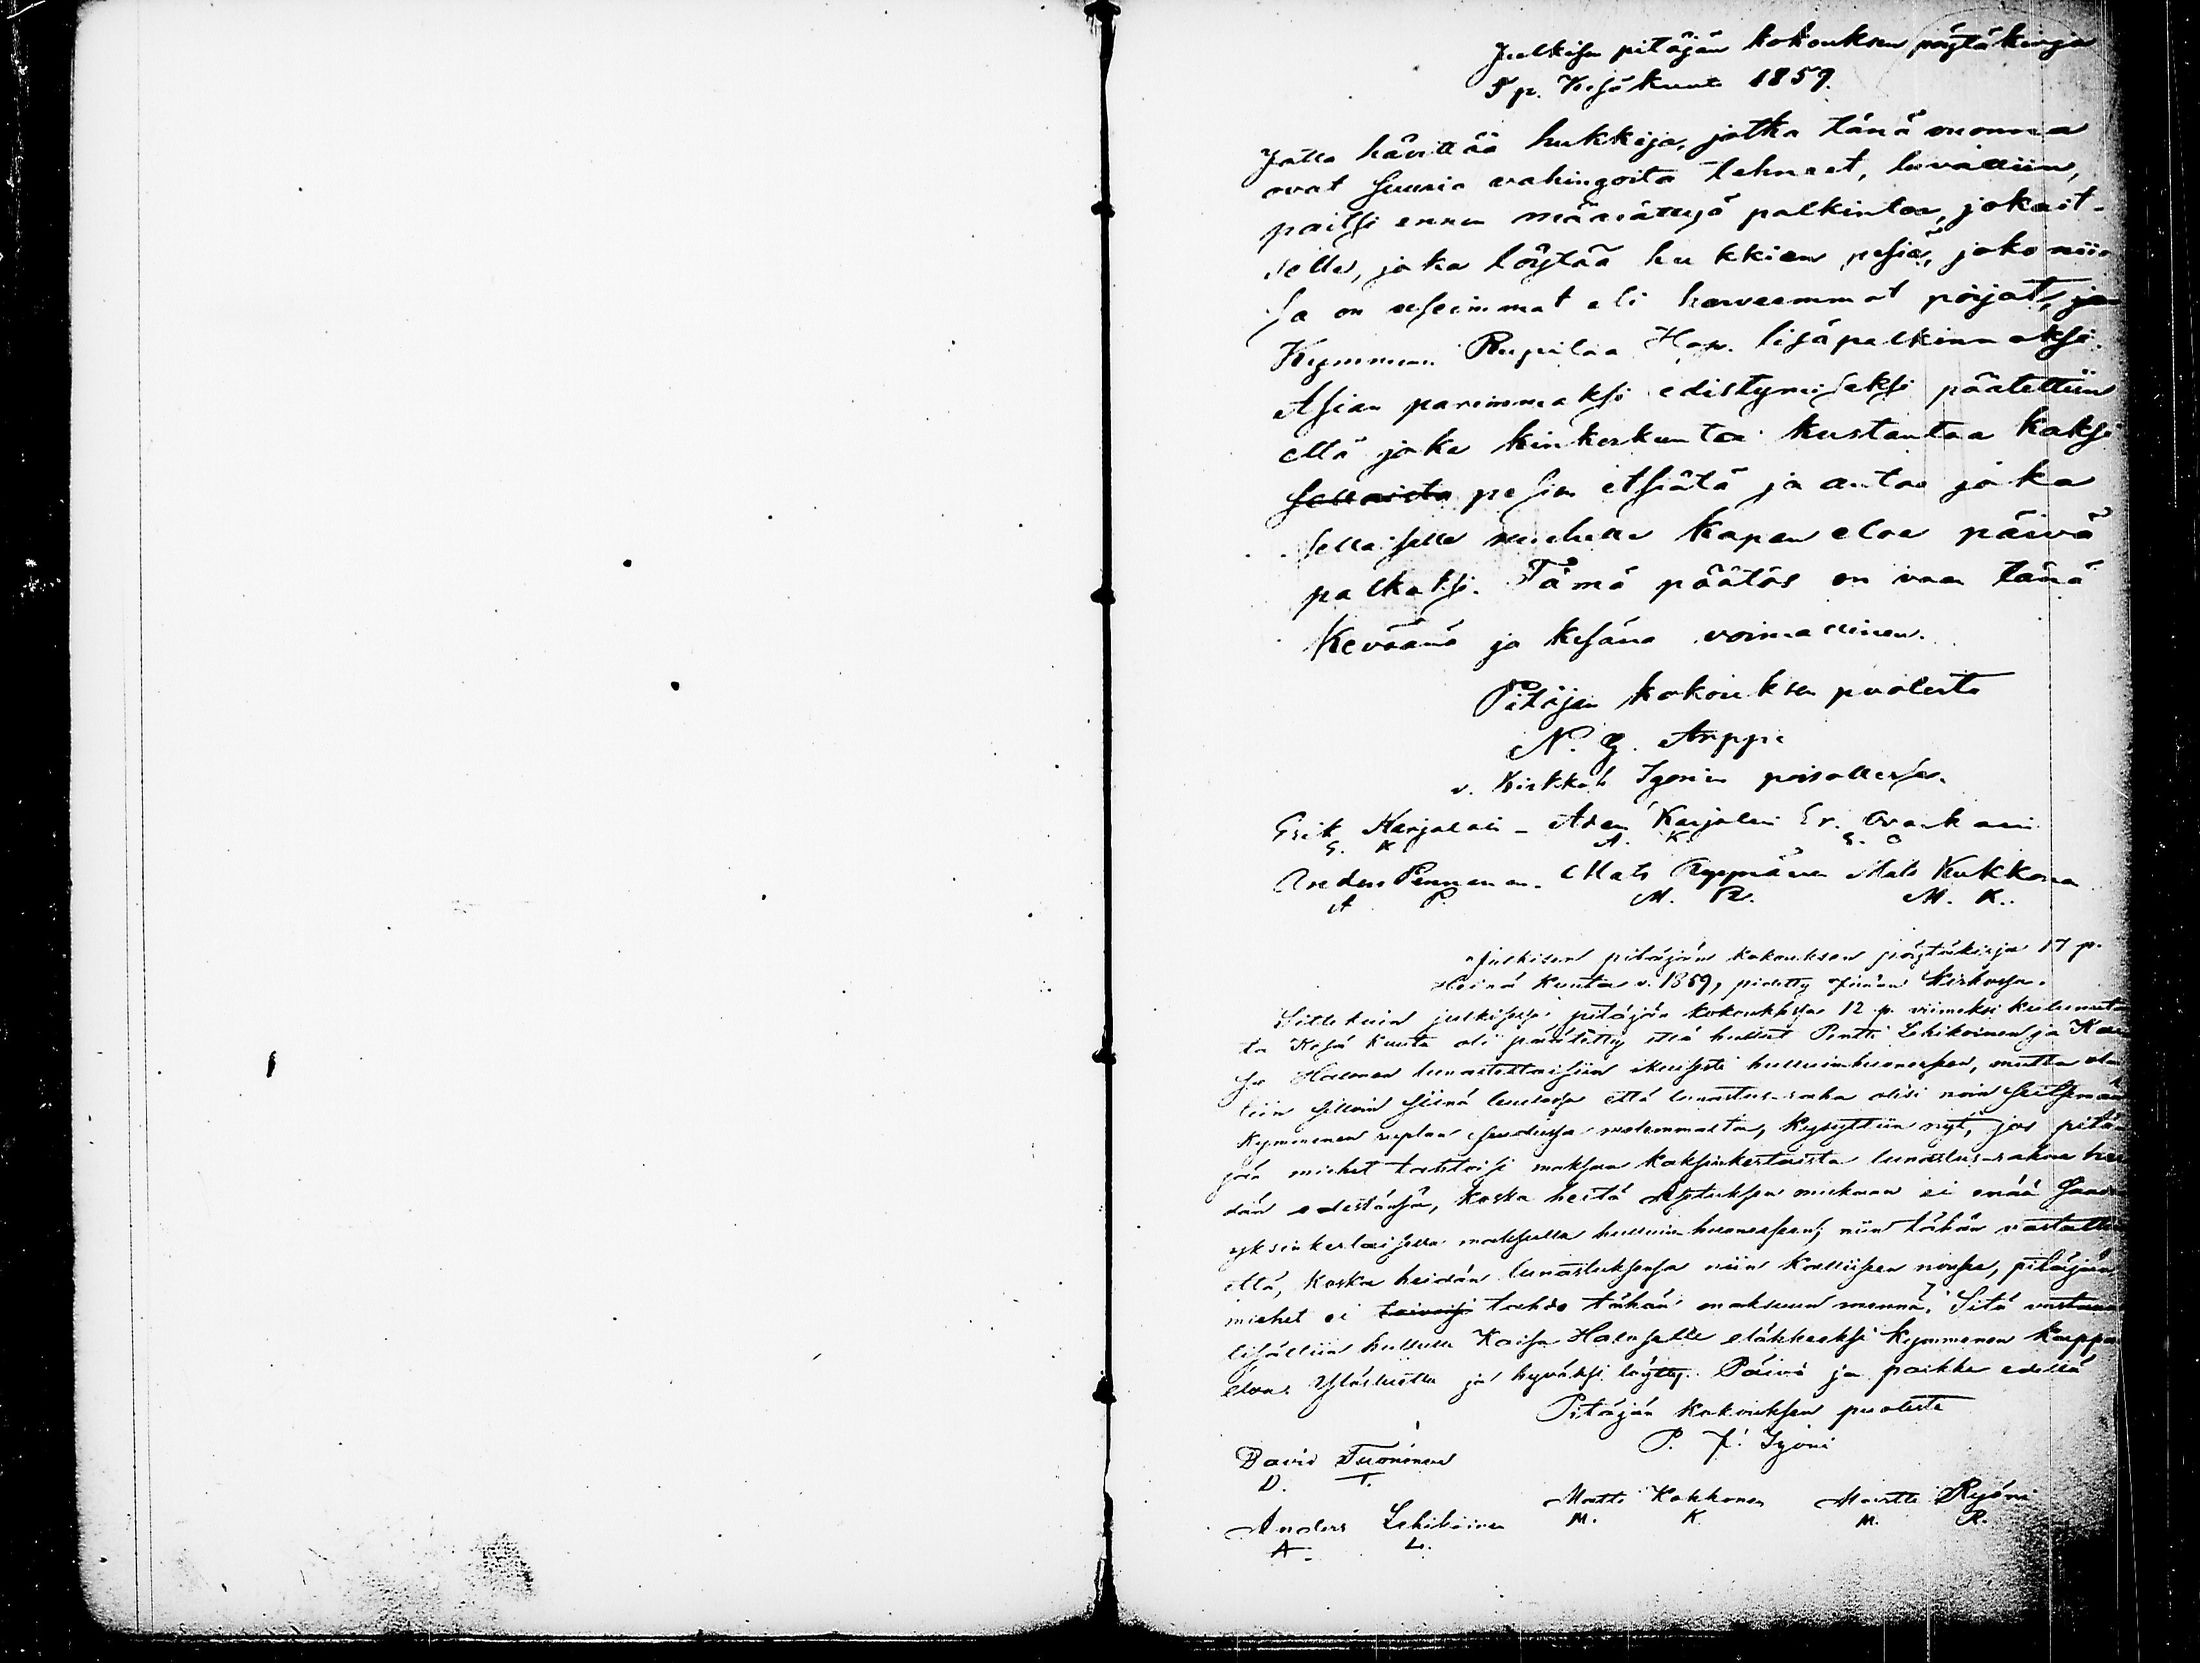 Julkisen pitäjän kokouksen pöytäkirja
5 p. Kesäkuuta 1859.
Jotta hävittää hukkija, jotka tänä vuonna
ovat suuria vahingoita tehneet, luvattiin,
paitsi ennen määrättyjä palkintoa, jokait-
selle, joka löytää hukkien pesiä, joko niis-
sä on useimmat eli harvemmat pojat, ja
Kymmenen Ruplaa Hop. lisäpalkinnoksi.
Asian parimmaksi edistymiseksi päätettiin
että joka kinkerkunta kustantaa kaksi
sellaista pesän etsiätä ja antaa joka
sellaiselle miehelle kapan eloa päivä
palkaksi. Tämä päätös on vaan tänä
Keväänä ja kesänä voimallinen.
Pitäjän kokouksen puolesta
N. G. Arppe
v. Kirkkoh Igonin poisollessa.
Erik Karjalain - Adam Karjalain Er. Ovaskain
E. K. A. K. E. O
Anders Pennanen. Mats Ryppnäinen Mats Kukkonen
A P. M. R. M. K.
Julkisen pitäjän kokouksen pöytäkirja 17 p.
Heinä kuuta v. 1859, pidetty Kirkossa.
Sitte kuin julkisessa pitäjän kokouksessa 12 p. viimeksi kulunutta
ta Kesä kuuta oli päätetty että hullut Pentti Lehikoinen ja Kai
sa Halonen lunastettaisiin ikuisesti hulluinhuoneesen, mutta ol
tiin silloin siinä luulossa että lunastus-raha olisi noin seitsemän
kymmenen ruplan seuduissa molemmalta, kysyttiin nyt, jos pitä
jän miehet tahtoisi maksaa kaksinkertaista lunastus-rahaa hei
dän edestänsä, koska heitä Asetuksen mukaan ei enää saada
yksinkertaisella maksulla hulluin huoneesen; niin tähän vastattiin
että, koska heidän lunastuksensa niin kalliisen nousee, pitäjän
miehet ei toivoisi tahdo tähän maksuun mennä. Sitä vastaan
lisättiin hullulle Kaisa Haloselle eläkkeeksi kymmenen kappaa
eloa. Ylösluettu ja hyväksi löytty. Päivä ja paikka edellä
Pitäjän kokouksen puolesta
P. J. Igoni
David Tuononen
D. T.
Matti Kokkonen Martti Ryöni
M. K. M. R.
Anders Lehikoinen
A. L.